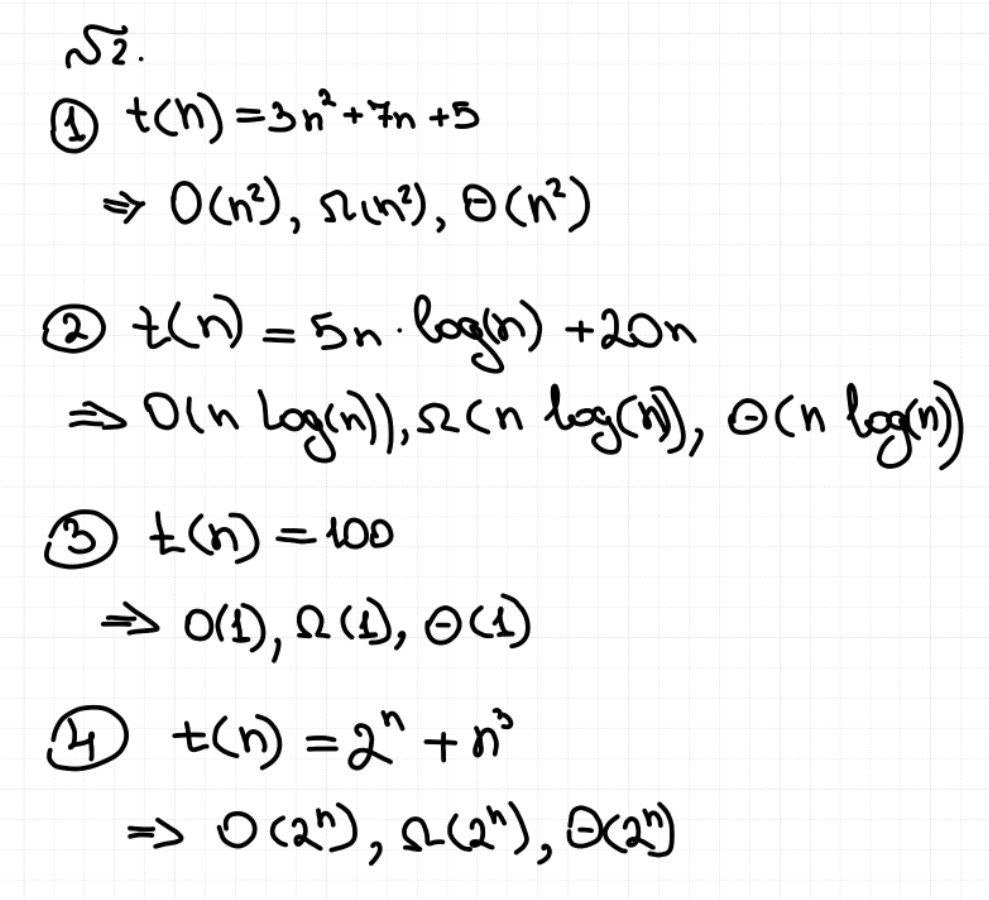 №2.
① t(n) = 3n² + 7n + 5
⇒ O(n²), Ω(n²), Θ(n²)
② t(n) = 5n · log(n) + 20n
⇒ O(n log(n)), Ω(n log(n)), Θ(n log(n))
③ t(n) = 100
⇒ O(1), Ω(1), Θ(1)
④ t(n) = 2ⁿ + n³
⇒ O(2ⁿ), Ω(2ⁿ), Θ(2ⁿ)